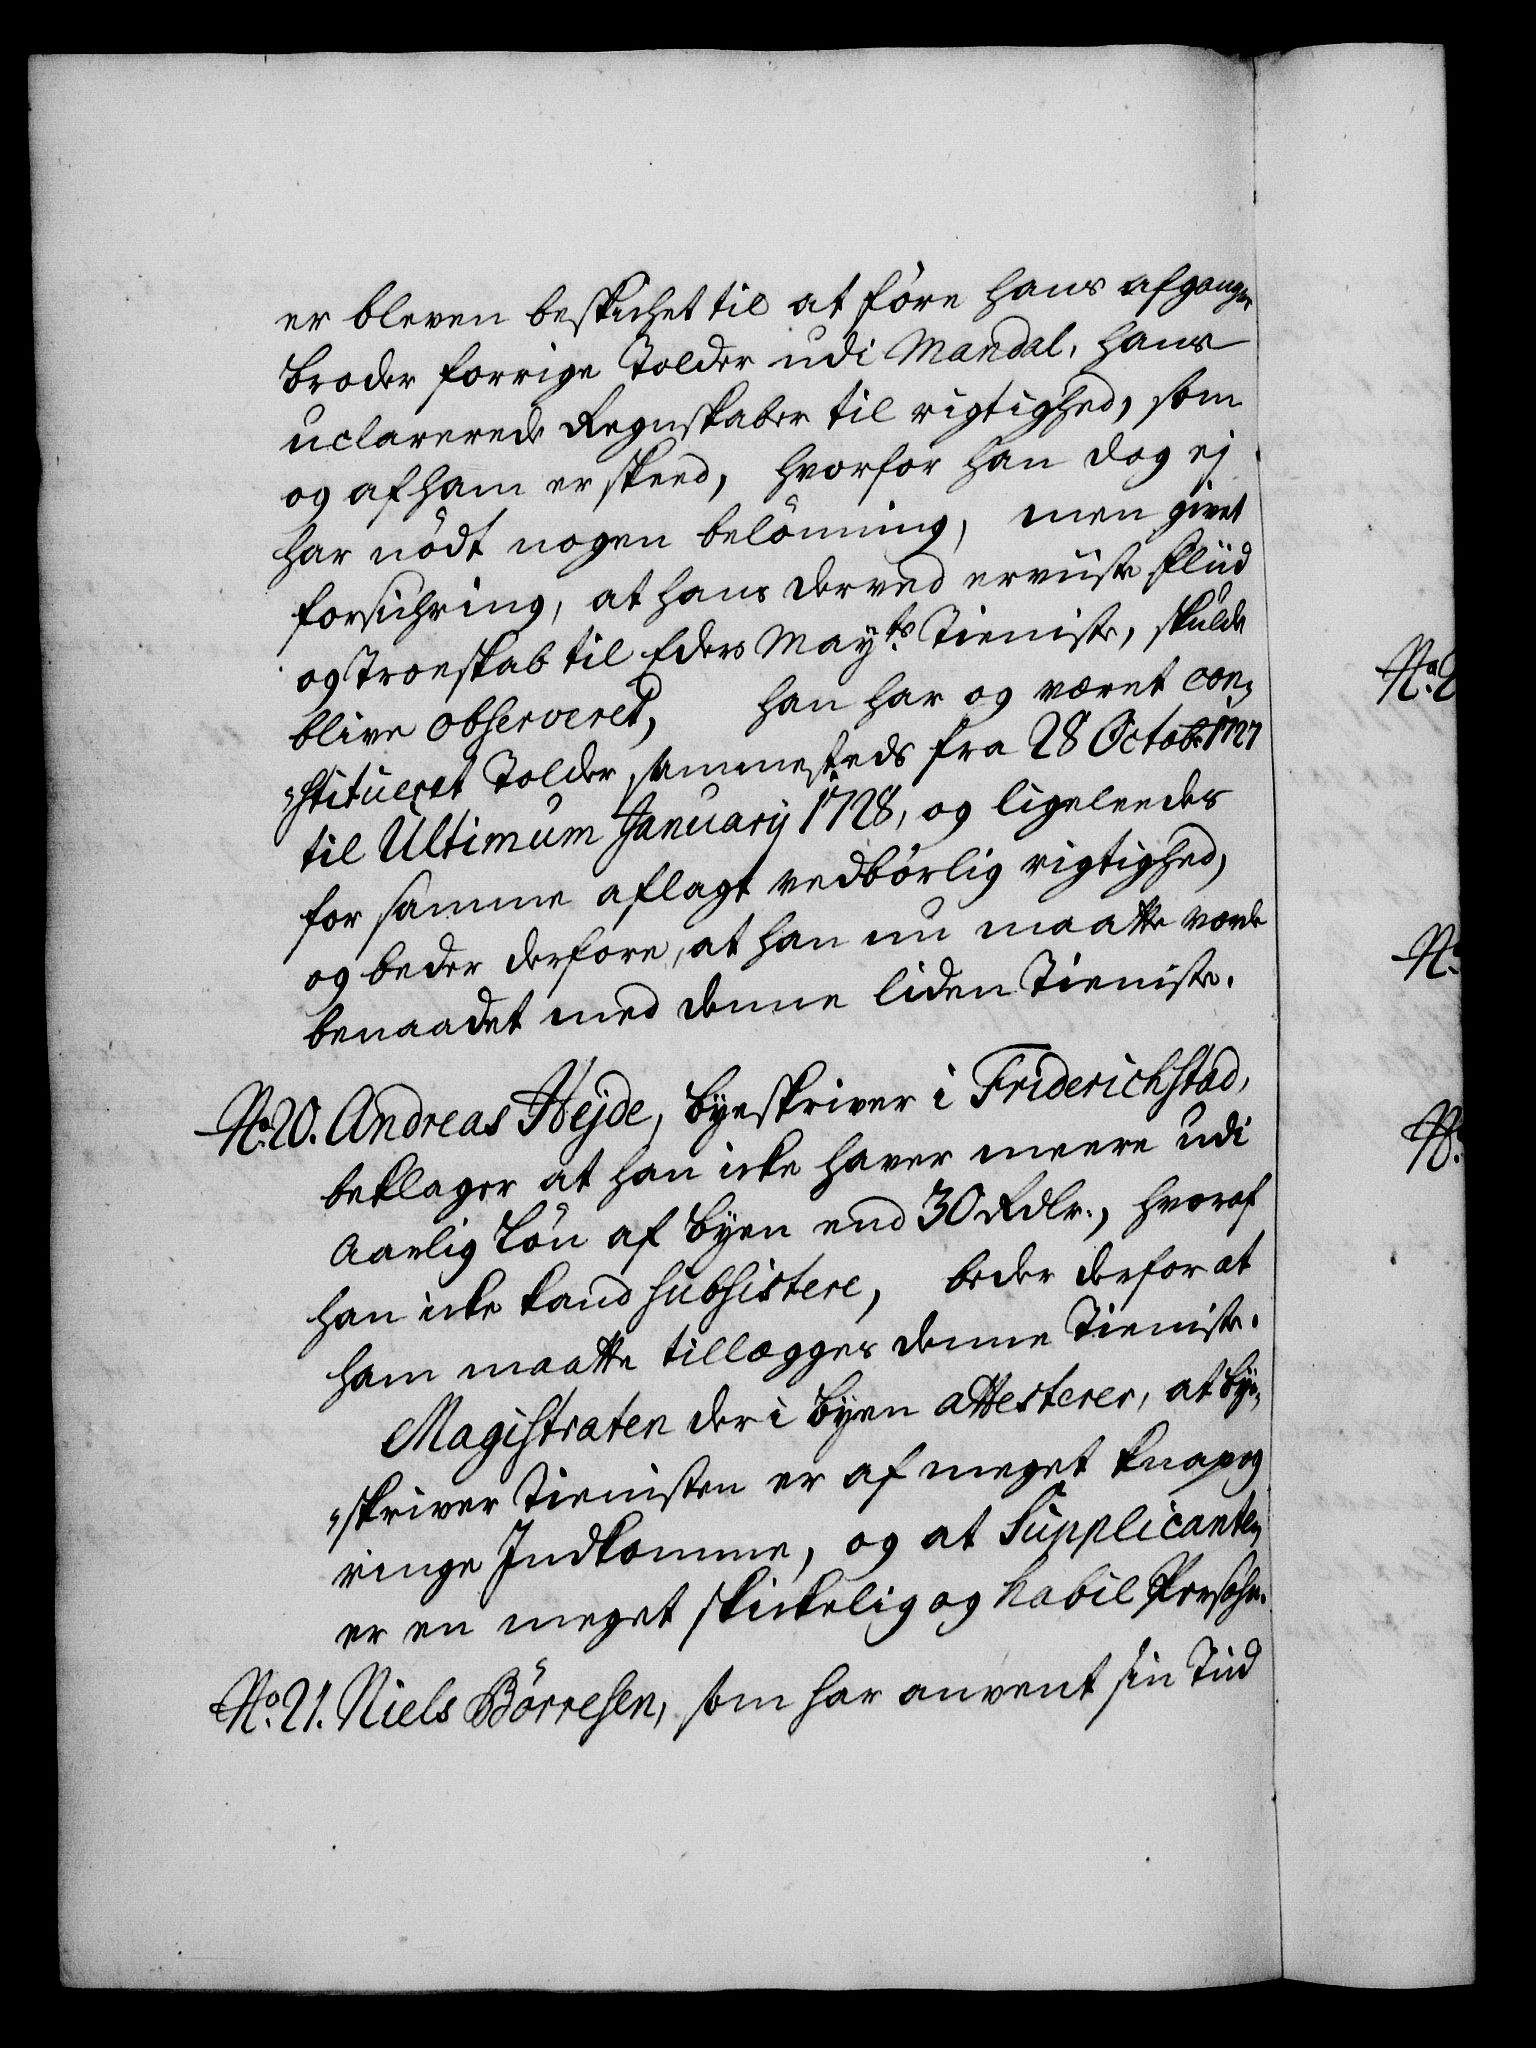 er bleven beskichet til at före hans afgangne
Broder forrige Tolder udi Mandal, hans
uclarerede Regnskaber til rigtighed, som
og af ham er skeed, hvorfor han dog ej
har nödt nogen belönning, men givet
forsichring, at hans derved erviiste Fliid
og Troeskab til Eders Mayts Tieniste, skulde
blive observeret, han har og været con-
„stitueret Tolder sammesteds fra 28 Octobr 1727
til Ultimum January 1728, og ligeleedes
for samme aflagt vedbörlig rigtighed,
og beder derfore, at han nu maatte vorde
benaadet med denne liden Tieniste.
No. 20. Andreas Hejde, byeskriver i Friderichstad,
beklager at han icke haver meere udi
Aarlig Lön af byen end 30 Rdlr., hvoraf
han icke kand subsistere, beder derfor at
ham maatte tillægges denne Tieniste.
Magistraten der i byen attesterer, at bÿe-
„skriver Tienisten er af meget knap og
ringe Indkomme, og at Supplicanten
er en meget skickelig og habil Persohn.
No. 21. Niels Börresen, som har anvent sin Tiid
No. 2
No.
No.